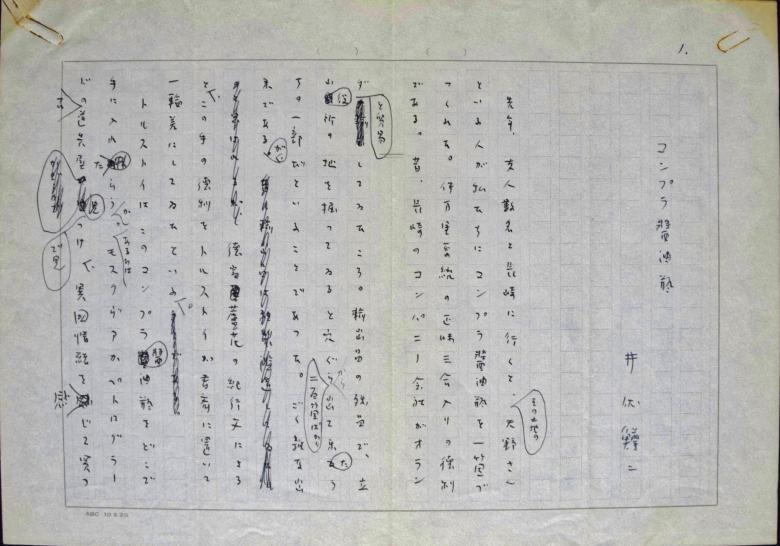 1.
コンプラ醤油瓶
井伏鱒二
先年、友人数名と長崎に行くと、その土地の大野さん
といふ人が私たちにコンプラ醤油瓶を一箇づ
つくれた。伊万里系統の正味三合入りの徳利
である。昔、長崎のコンパニー会社がオラン
ダと貿易してゐたころ。輸出品の残品で、立
山役所の地を掘つてゐると穴ぐらから二百箇ばかり出て来たう
ちの一部だといふことであつた。ごく雑な出
来である。がい
徳冨蘆花の紀行文による
とこの手の徳利をトルストイが書斎に置いて
一輪差にしてゐたといふ。
トルストイはこのコンプラ醤油瓶をどこで
手に入れたらうか。あるひはモスクヴアかペトログラー
ドの道具屋で見つけ、異国情緒を感じて買つ
ABC 10×20